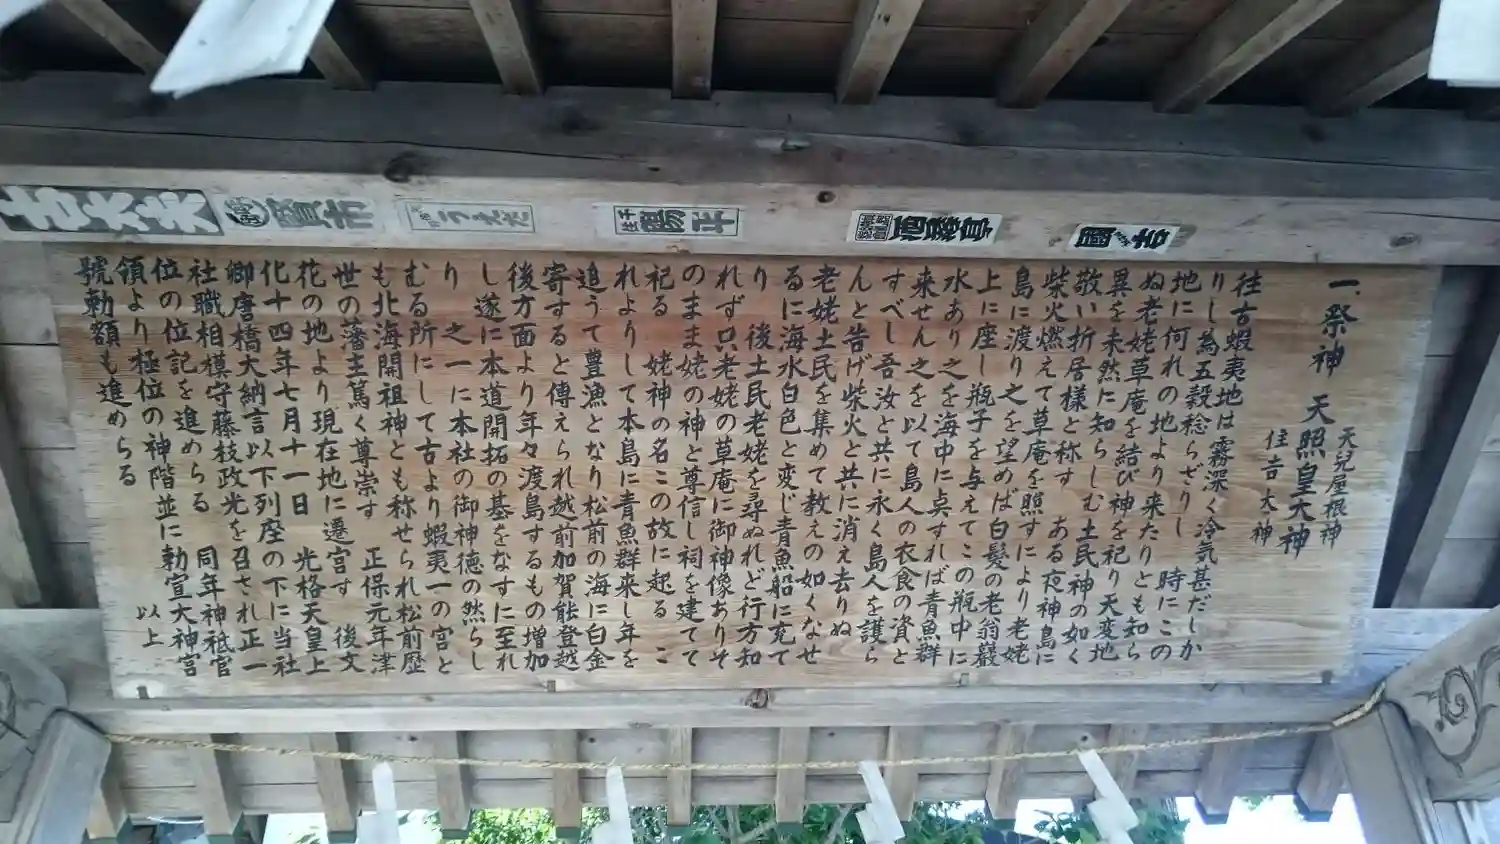 一、祭神　天照皇大神
天兒屋根神
住吉大神
往古蝦夷地は霧深く冷気甚だしか
りし為五穀稔らざりし　時にこの
地に何れの地より来たりとも知ら
ぬ老姥草庵を結び神を祀り天変地
異を未然に知らしむ土民神の如く
敬い折居様と称す　ある夜神島に
柴火燃えて草庵を照すにより老姥
島に渡り之を望めば白髪の老翁巌
上に座し瓶子を与えてこの瓶中に
水あり之を海中に烎すれば青魚群
来せん之を以て島人の衣食の資と
すべし吾汝と共に永く島人を護ら
んと告げ柴火と共に消え去りぬ
老姥土民を集めて教えの如くなせ
るに海水白色と変じ青魚船に充て
り　後土民老姥を尋ぬれど行方知
れず只老姥の草庵に御神像ありそ
のまま姥の神と尊信し祠を建てて
祀る　姥神の名この故に起る　こ
れよりして本島に青魚群来し年を
追うて豊漁となり松前の海に白金
寄すると傳えられ越前加賀能登越
後方面より年々渡島するもの増加
し遂に本道開拓の基をなすに至れ
り　之一に本社の御神徳の然らし
むる所にして古より蝦夷一の宮と
も北海開祖神とも称せられ松前歴
世の藩主篤く尊崇す　正保元年津
花の地より現在地に遷宮す　後文
化十四年七月十一日　光格天皇上
卿唐橋大納言以下列座の下に当社
社職相模守藤枝政光を召され正一
位の位記を進めらる　同年神祗官
領より極位の神階並に勅宣大神宮
號勅額も進めらる
以上